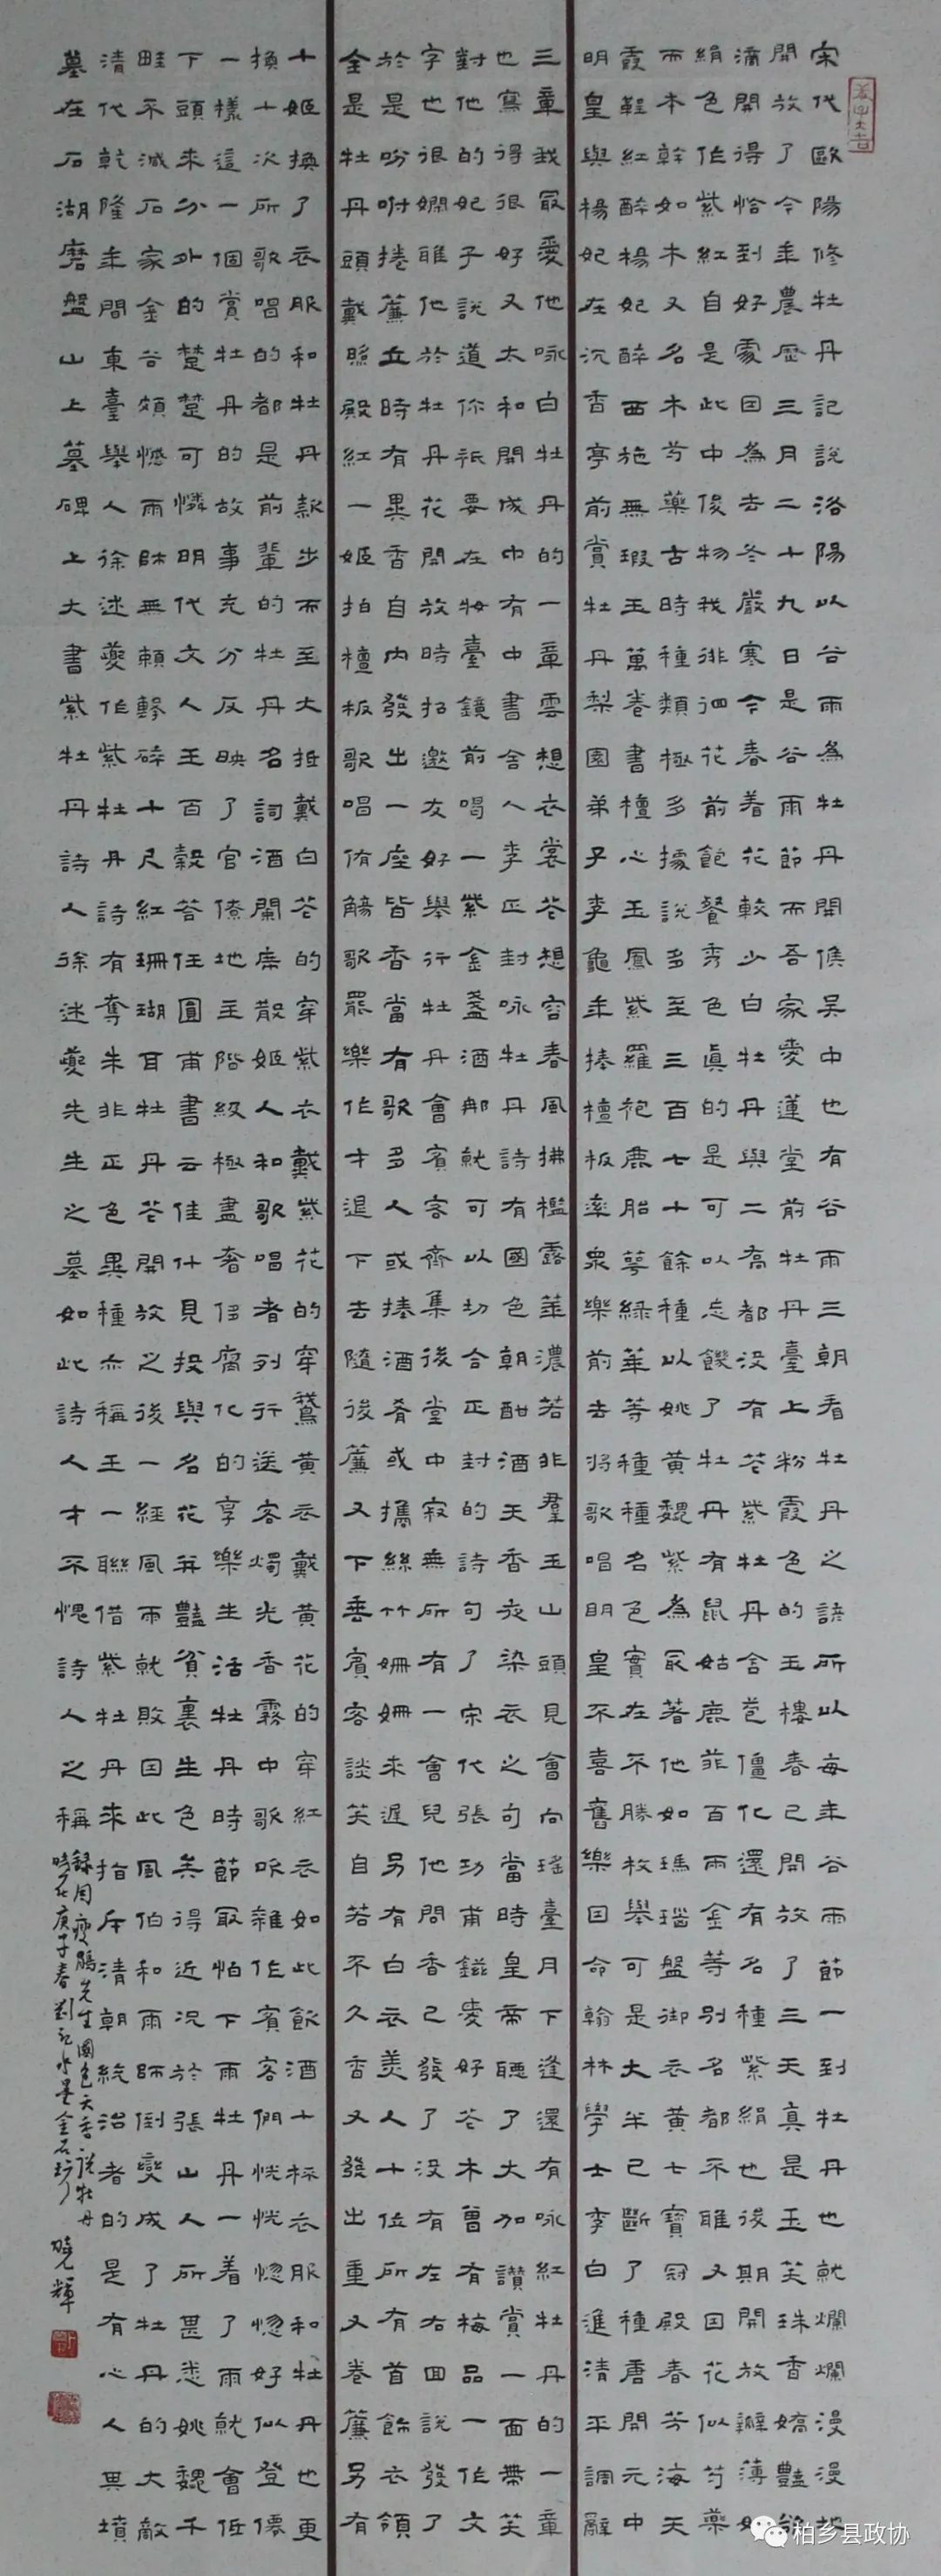 宋代歐陽修牡丹記說洛陽以谷雨為牡丹開候吴中也有谷雨三朝看牡丹之諺所以每年谷雨節一到牡丹也就爛爛漫漫地
開放了今年農歷三月二十九日是谷雨節而吾家愛蓮堂前牡丹臺上粉霞色的玉樓春已開放了三天真是玉笑珠香嬌豔欲
滴開得恰到好處因為去冬嚴寒今春着花較少白牡丹與二喬都没有花紫牡丹含苞僵化還有名種紫絹也後期開放瓣薄如
絹色作紫紅自是此中俊物我徘徊花前飽餐秀色真的是可以忘饑了牡丹有鼠姑鹿菲百兩金等别名都不雅又因花似芍藥
而木幹如木又名木芍藥古時種類極多據說多至三百七十餘種以姚黄魏紫為最著他如瑪瑙盤御衣黄七寶冠殿春芳海天
霞鞓紅醉楊妃醉西施無瑕玉萬卷書檀心玉鳳紫羅袍鹿胎萼緑華等種種名色實在不勝枚舉可是大半已斷了種唐開元中
明皇與楊妃在沉香亭前賞牡丹梨園弟子李龜年捧檀板率眾樂前去將歌唱明皇不喜舊樂因命翰林學士李白進清平調辭
三章我最愛他咏白牡丹的一章雲想衣裳花想容春風拂檻露華濃若非羣玉山頭見會向瑤臺月下逢還有咏紅牡丹的一章
也寫得很好又太和開成中有中書舍人李正封咏牡丹詩有國色朝酣酒天香夜染衣之句當時皇帝聽了大加讚賞一面帶笑
對他的妃子說道你祇要在妝臺鏡前喝一紫金盞酒那就可以切合正封的詩句了宋代張功甫鎡愛好花木曾有梅品一作文
字也很嫻雅他於牡丹花開放時招邀友好舉行牡丹會賓客齊集後堂中寂無所有一會兒他問香已發了没有左右回說發了
於是吩咐捲簾立時有異香自内發出一座皆香當有歌多人或捧酒肴或攜絲竹姍姍来遲另有白衣美人十位所有首飾衣領
全是牡丹頭戴照殿紅一姬拍檀板歌唱侑觴歌罷樂作才退下去隨後簾又下垂賓客談笑自若不久香又發出重又卷簾另有
十姬換了衣服和牡丹款步而至大抵戴白花的穿紫衣戴紫花的穿鵝黄衣戴黄花的穿紅衣如此飲酒十杯衣服和牡丹也更
換十次所歌唱的都是前輩的牡丹名詞酒闌席散姬人和歌唱者列行送客燭光香霧中歌吹雜作賓客們恍恍惚惚好似登僊
一樣這一個賞牡丹的故事充分反映了官僚地主階級極盡奢侈腐化的享樂生活牡丹時節最怕下雨牡丹一着了雨就會任
下頭來分外的楚楚可憐明代文人王百穀答任圓甫書云佳什見投與名花并豔貧裏生色矣得近况於張山人所甚悉姚魏千
畦不減石家金谷頗憾雨師無賴擊碎十尺紅珊瑚耳牡丹花開放之後一經風雨就敗因此風伯和雨師倒變成了牡丹的大敵
清代乾隆年間東臺舉人徐述夔作紫牡丹詩有奪朱非正色異種亦稱王一聯借紫牡丹来指斥清朝統治者的是有心人其墳
墓在石湖磨盤山上墓碑上大書紫牡丹詩人徐述夔先生之墓如此詩人才不愧詩人之稱
錄周瘦鵑先生國色天香說牡丹
時在庚子春劉記水墨金石坊 曉輝
柏乡县政协